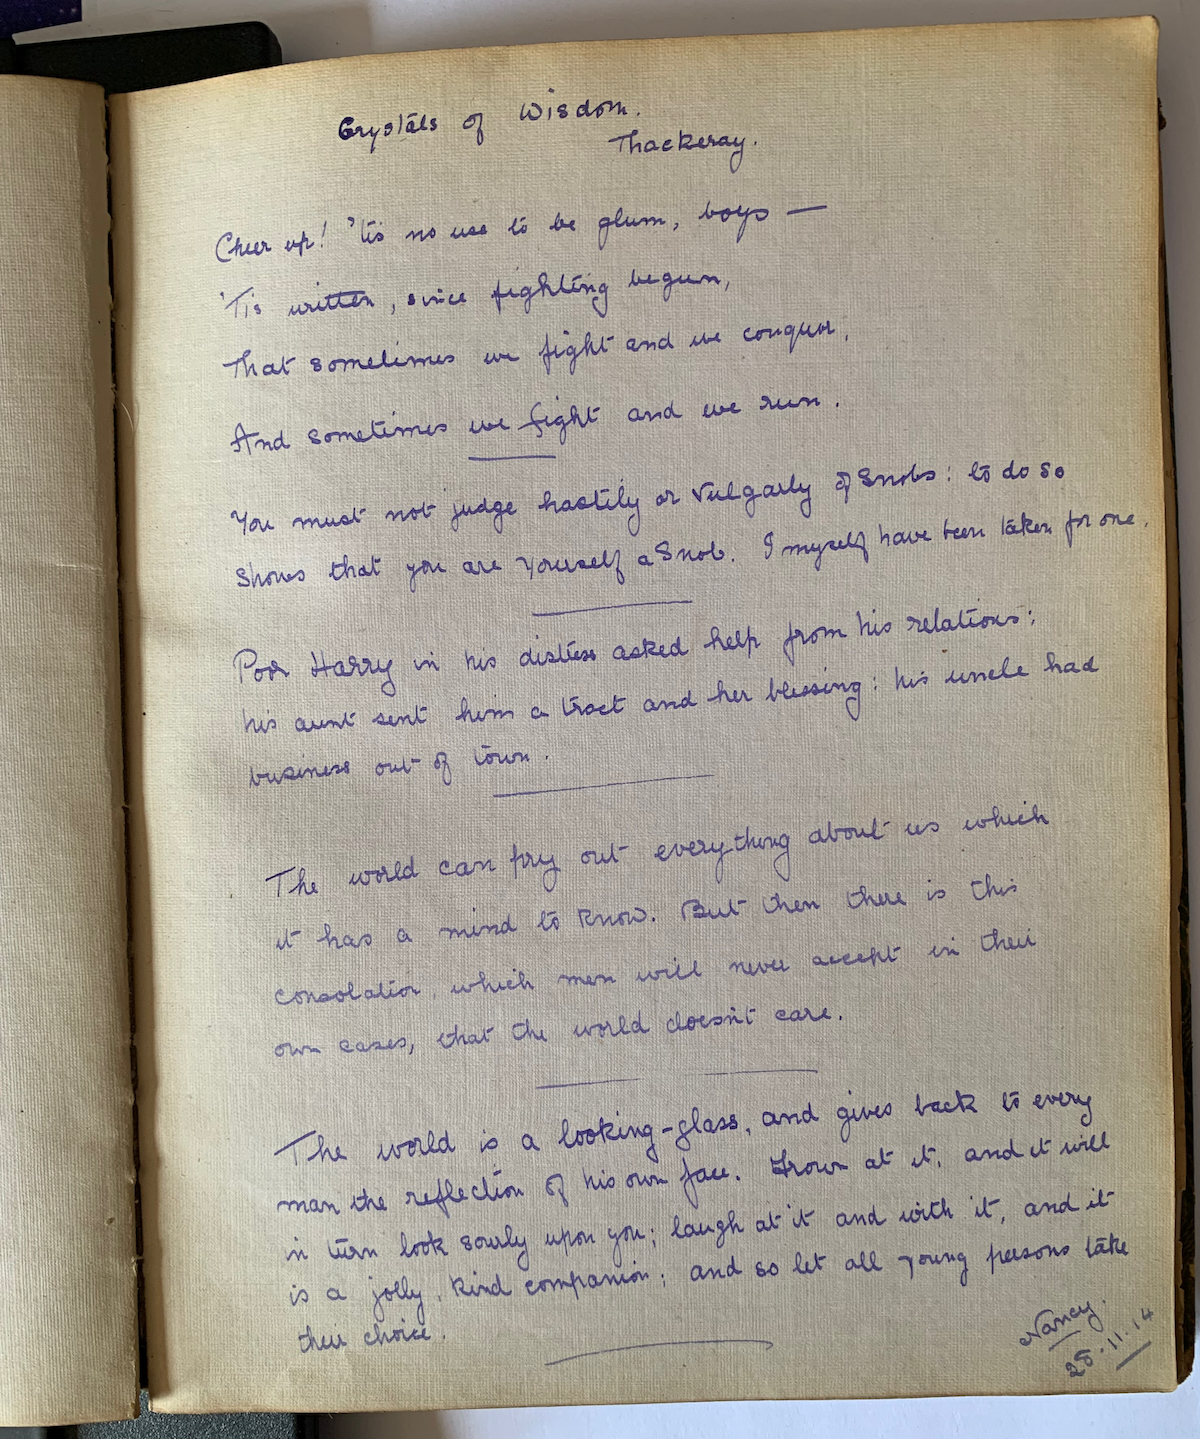 Crystals of Wisdom.
Thackeray.
Cheer up! 'tis no use to be glum, boys —
'Tis written, since fighting begun,
That sometimes we fight and we conquer,
And sometimes we fight and we run.
You must not judge hastily or Vulgarly of Snobs: to do so
shows that you are yourself a Snob. I myself have been taken for one.
Poor Harry in his distress asked help from his relations;
his aunt sent him a tract and her blessing: his uncle had
business out of town.
The world can pry out everything about us which
it has a mind to know. But then there is this
consolation, which men will never accept in their
own cases, that the world doesn't care.
The world is a looking-glass, and gives back to every
man the reflection of his own face. Frown at it, and it will
in turn look sourly upon you; laugh at it and with it, and it
is a jolly, kind companion; and so let all young persons take
their choice.
Nancy.
28.11.14